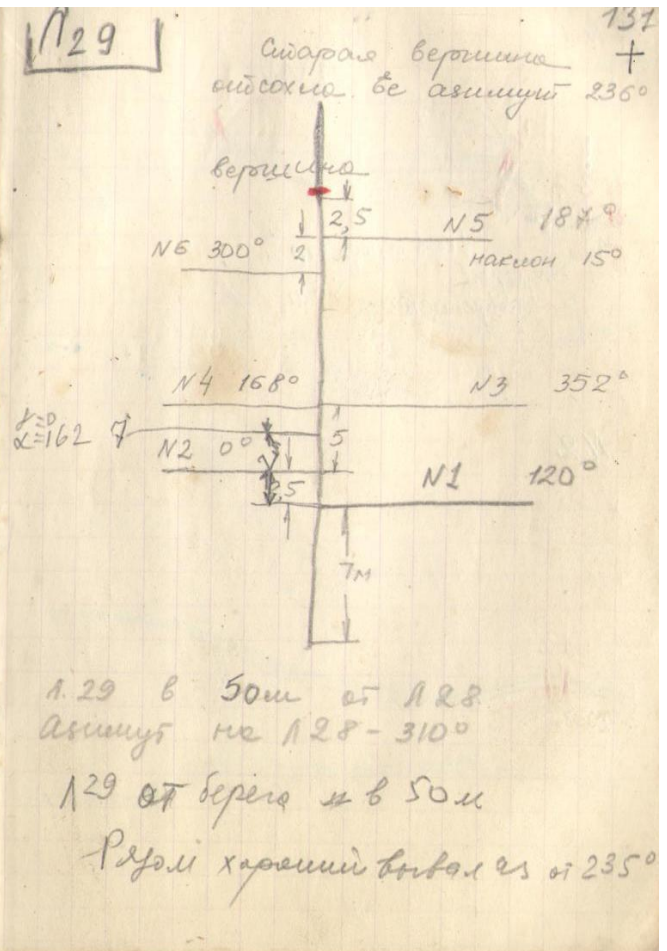 Л29
131
+
Старая вершина
отсохла. Ее азимут 236°
вершина
2,5
N5 187°
N6 300°
2
наклон 15°
N4 168°
N3 352°
γ=0
α=162 7
5
N2 0°
N1 120°
2,5
7м
Л.29 в 50м от Л28
Азимут на Л28-310°
Л29 от берега в 50м
Рядом хороший вывал аз от 235°